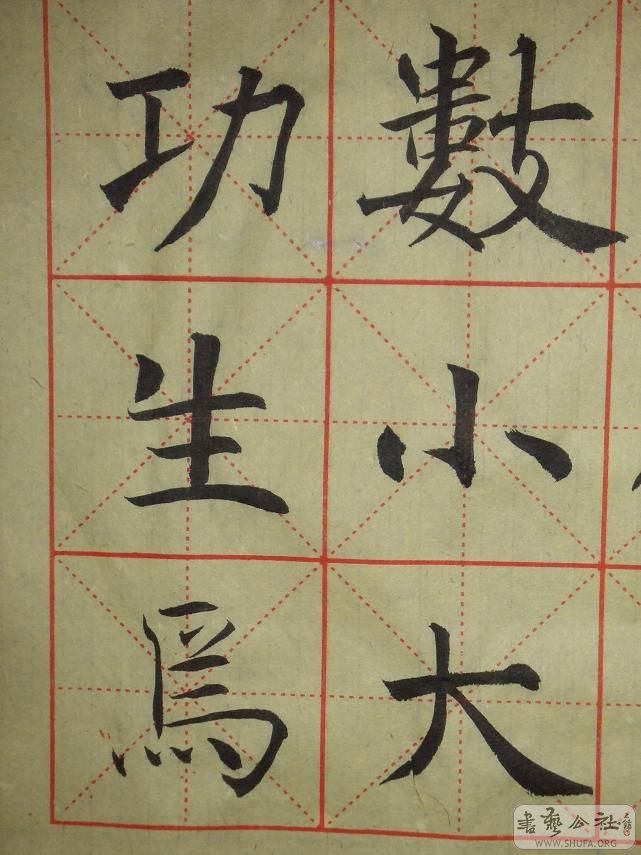 數小大
功生爲
書藝公社
WWW.SHUFA.ORG